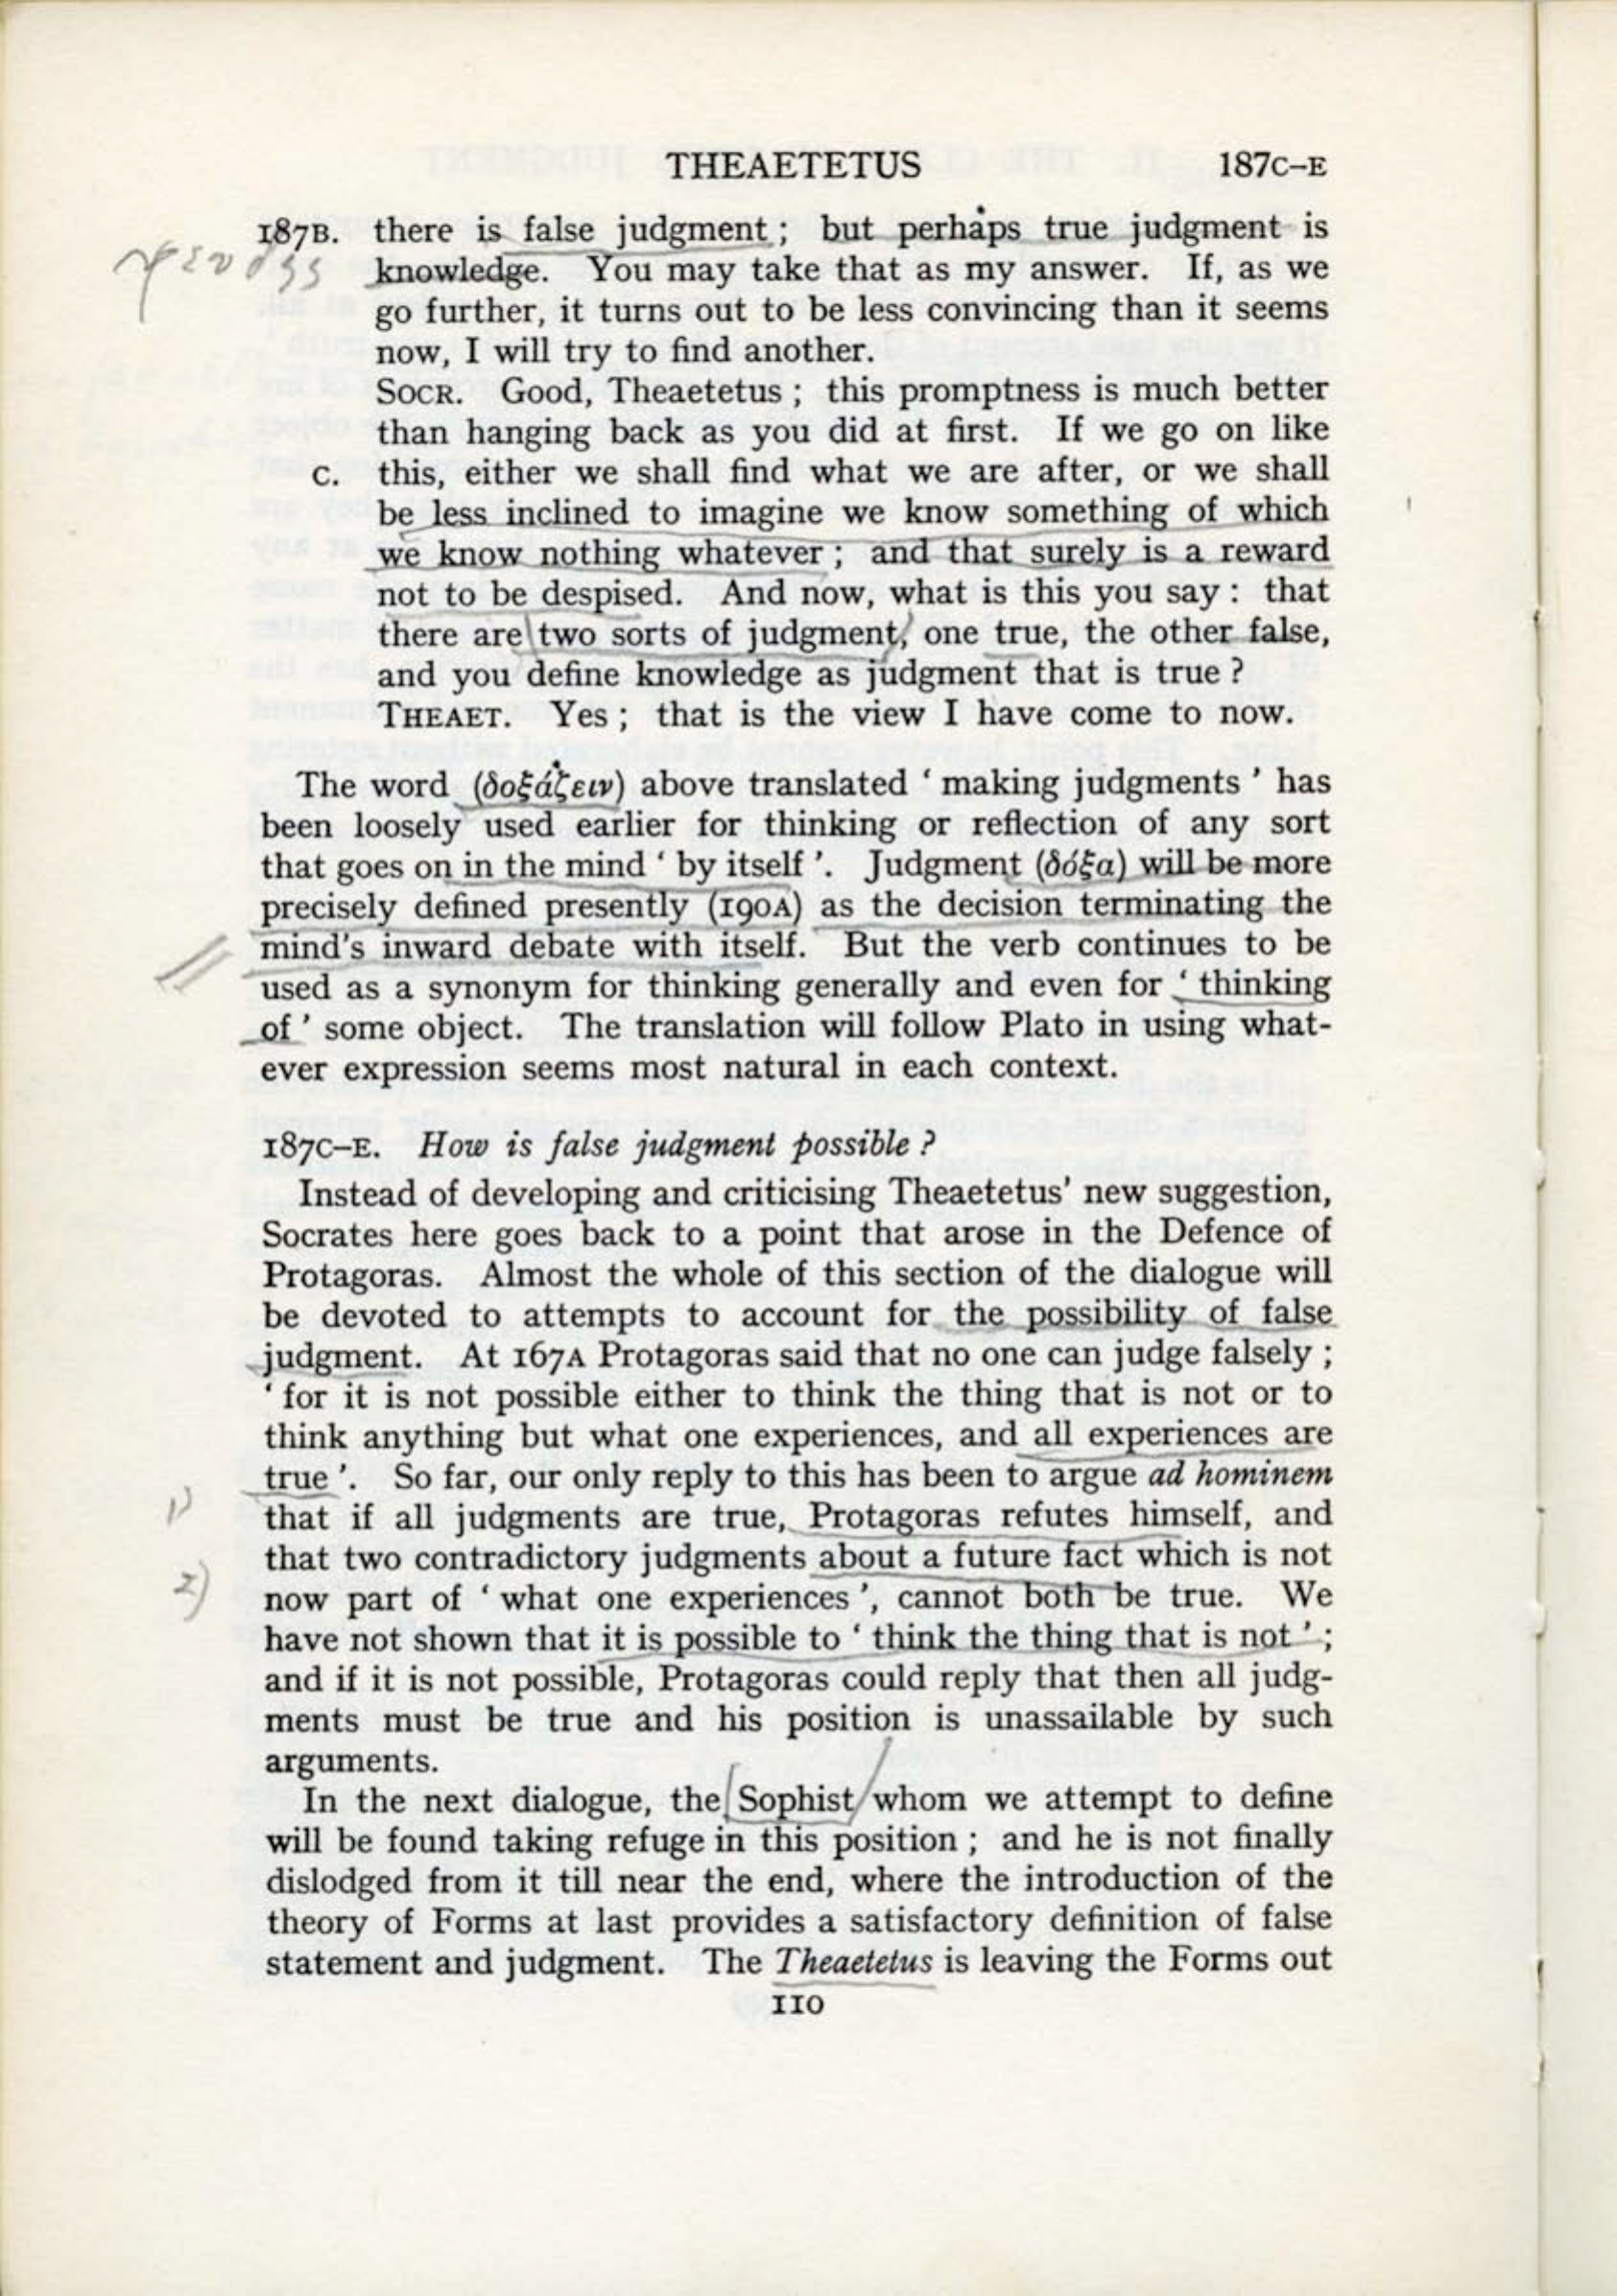 THEAETETUS 187C–E
187B. there is false judgment ; but perhaps true judgment is
ψευδής knowledge. You may take that as my answer. If, as we
go further, it turns out to be less convincing than it seems
now, I will try to find another.
SOCR. Good, Theaetetus ; this promptness is much better
than hanging back as you did at first. If we go on like
C. this, either we shall find what we are after, or we shall
be less inclined to imagine we know something of which
we know nothing whatever ; and that surely is a reward
not to be despised. And now, what is this you say : that
there are two sorts of judgment, one true, the other false,
and you define knowledge as judgment that is true ?
THEAET. Yes ; that is the view I have come to now.
The word (δοξάζειν) above translated ‘ making judgments ’ has
been loosely used earlier for thinking or reflection of any sort
that goes on in the mind ‘ by itself ’. Judgment (δόξα) will be more
precisely defined presently (190A) as the decision terminating the
mind's inward debate with itself. But the verb continues to be
used as a synonym for thinking generally and even for ‘ thinking
of ’ some object. The translation will follow Plato in using what-
ever expression seems most natural in each context.
187C–E. How is false judgment possible ?
Instead of developing and criticising Theaetetus' new suggestion,
Socrates here goes back to a point that arose in the Defence of
Protagoras. Almost the whole of this section of the dialogue will
be devoted to attempts to account for the possibility of false
judgment. At 167A Protagoras said that no one can judge falsely ;
‘ for it is not possible either to think the thing that is not or to
think anything but what one experiences, and all experiences are
true ’. So far, our only reply to this has been to argue ad hominem
1) that if all judgments are true, Protagoras refutes himself, and
2) that two contradictory judgments about a future fact which is not
now part of ‘ what one experiences ’, cannot both be true. We
have not shown that it is possible to ‘ think the thing that is not ’ ;
and if it is not possible, Protagoras could reply that then all judg-
ments must be true and his position is unassailable by such
arguments.
In the next dialogue, the Sophist whom we attempt to define
will be found taking refuge in this position ; and he is not finally
dislodged from it till near the end, where the introduction of the
theory of Forms at last provides a satisfactory definition of false
statement and judgment. The Theaetetus is leaving the Forms out
110